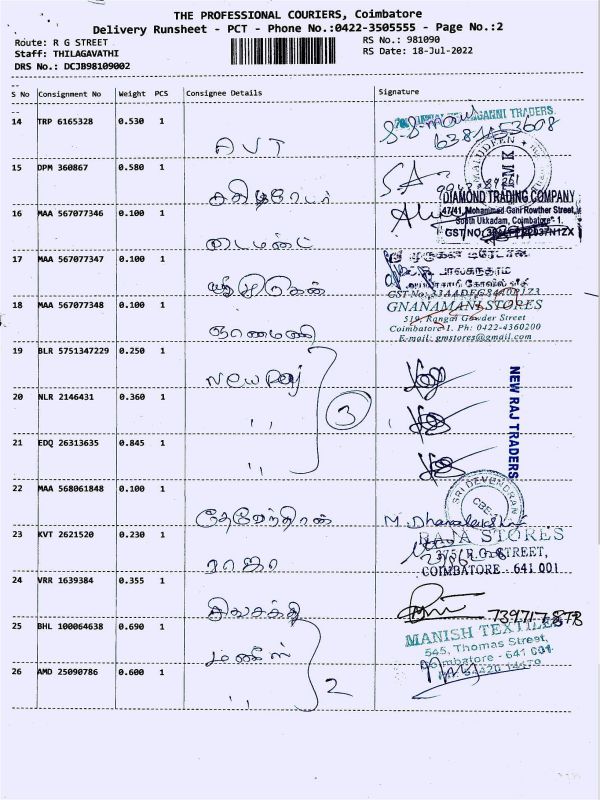 THE PROFESSIONAL COURIERS, Coimbatore
Delivery Runsheet - PCT - Phone No.:0422-3505555 - Page No.:2
Route: R G STREET
Staff: THILAGAVATHI
DRS No.: DCJB98109002
RS No.: 981090
RS Date: 18-Jul-2022
S No Consignment No Weight PCS Consignee Details Signature
14 TRP 6165328 0.530 1
AVT
GANNI TRADERS
6381453608
15 DPM 360867 0.580 1
SA
16 MAA 567077346 0.100 1
டைமண்ட்
DIAMOND TRADING COMPANY
47/41, Mohammed Gani Rowther Street,
South Ukkadam, Coimbatore - 1.
17 MAA 567077347 0.100 1
ஸ்ரீ முருகன்
ஸ்ரீ முருகன் டிரேடர்ஸ்
18 MAA 567077348 0.100 1
ஞானமணி
GNANAMANI STORES
519, Rangai Gowder Street
Coimbatore-1. Ph: 0422-4360200
E-mail: gmstores@gmail.com
19 BLR 5751347229 0.250 1
New Raj
20 NLR 2146431 0.360 1
,,
3
NEW RAJ TRADERS
21 EDQ 26313635 0.845 1
,,
22 MAA 568061848 0.100 1
தேவேந்திரன்
SRI DEVENDRAN
CBE-1
23 KVT 2621520 0.230 1
ராஜா
RAJA STORES
375, R.G. STREET,
COIMBATORE - 641 001
24 VRR 1639384 0.355 1
சிவசக்தி
25 BHL 100064638 0.690 1
மனிஸ்
MANISH TEXTILES
545, Thomas Street,
Coimbatore - 641 001.
26 AMD 25090786 0.600 1
,,
2